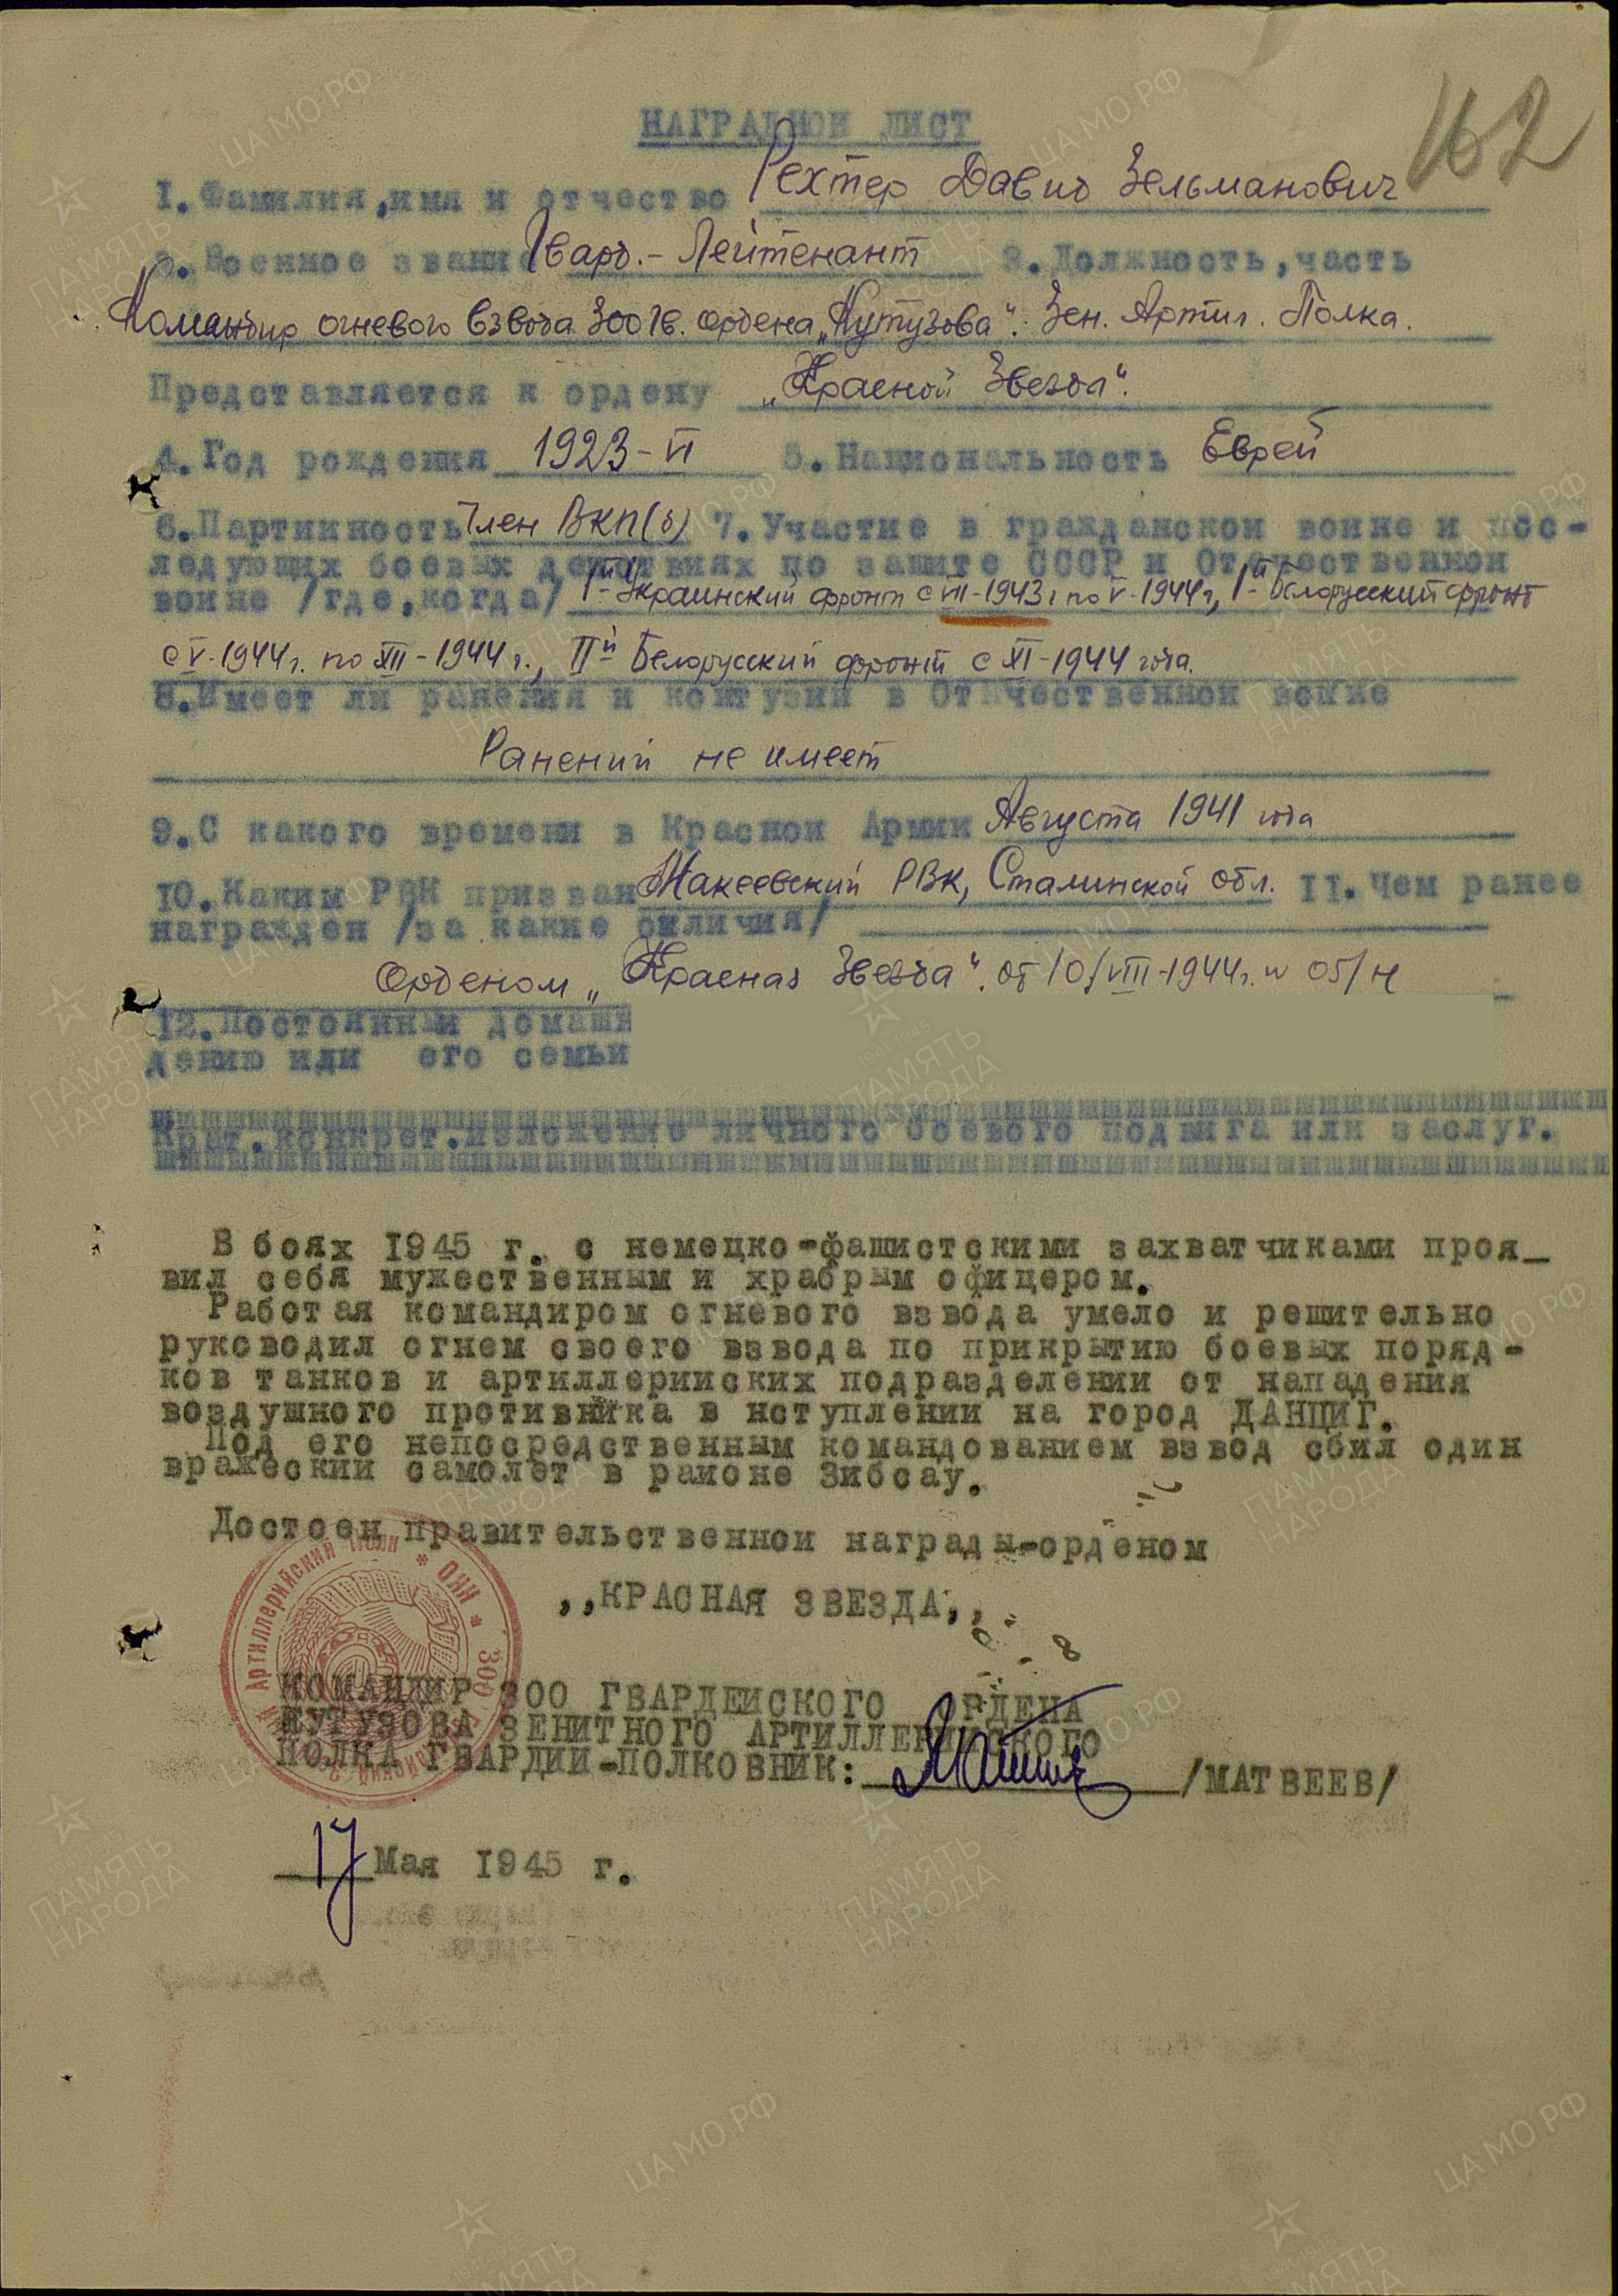 162
НАГРАДНОЙ ЛИСТ
1. Фамилия, имя и отчество Рехтер Давид Зельманович
2. Военное звание Гвард.- Лейтенант 3. Должность, часть
Командир огневого взвода 300 гв. ордена „Кутузова". Зен. Артил. Полка.
Представляется к ордену „Красной Звезды".
4. Год рождения 1923-VI 5. Национальность Еврей
6. Партийность Член ВКП(б) 7. Участие в гражданской войне и пос-
ледующих боевых действиях по защите СССР и Отечественной
войне /где, когда/ 1й Украинский фронт с VII-1943г по V-1944г, 1й Белорусский фронт
с V-1944г. по XII-1944г., IIй Белорусский фронт с XI-1944 года.
8. Имеет ли ранения и контузии в Отечественной войне
Ранений не имеет
9. С какого времени в Красной Армии Августа 1941 года
10. Каким РВК призван Макеевский РВК, Сталинской обл. 11. Чем ранее
награжден /за какие отличия/
Орденом „Красная Звезда". от 10/VIII-1944г. № 05/н
12. Постоянный домашн
дению или его семьи
Крат. конкрет. изложение личного боевого подвига или заслуг.
В боях 1945 г. с немецко-фашистскими захватчиками проя_
вил себя мужественным и храбрым офицером.
Работая командиром огневого взвода умело и решительно
руководил огнем своего взвода по прикрытию боевых поряд-
ков танков и артиллерийских подразделений от нападения
воздушного противника в нступлении на город ДАНЦИГ.
Под его непосредственным командованием взвод сбил один
вражеский самолет в районе Зибсау.
Достоен правительственной награды-орденом
,,КРАСНАЯ ЗВЕЗДА,,
КОМАНДИР 300 ГВАРДЕЙСКОГО ОРДЕНА
КУТУЗОВА ЗЕНИТНОГО АРТИЛЛЕРИЙСКОГО
ПОЛКА ГВАРДИИ-ПОЛКОВНИК: /МАТВЕЕВ/
17 Мая 1945 г.
Артиллерийский полк * ОНИ * 300
ЦА МО РФ
ПАМЯТЬ НАРОДА